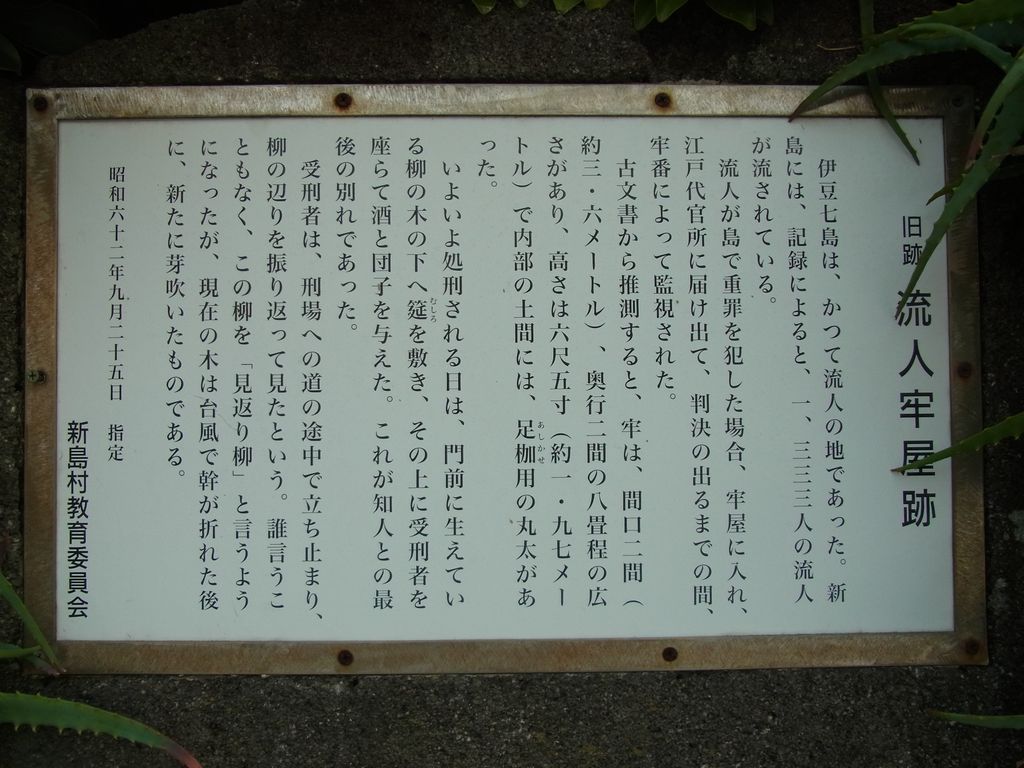 旧跡 流人牢屋跡
伊豆七島は、かつて流人の地であった。新
島には、記録によると、一、三三三人の流人
が流されている。
流人が島で重罪を犯した場合、牢屋に入れ、
江戸代官所に届け出て、判決の出るまでの間、
牢番によって監視された。
古文書から推測すると、牢は、間口二間（
約三・六メートル）、奥行二間の八畳程の広
さがあり、高さは六尺五寸（約一・九七メー
トル）で内部の土間には、足枷用の丸太があ
った。
いよいよ処刑される日は、門前に生えてい
る柳の木の下へ筵を敷き、その上に受刑者を
座らて酒と団子を与えた。これが知人との最
後の別れであった。
受刑者は、刑場への道の途中で立ち止まり、
柳の辺りを振り返って見たという。誰言うこ
ともなく、この柳を「見返り柳」と言うよう
になったが、現在の木は台風で幹が折れた後
に、新たに芽吹いたものである。
昭和六十二年九月二十五日 指定
新島村教育委員会